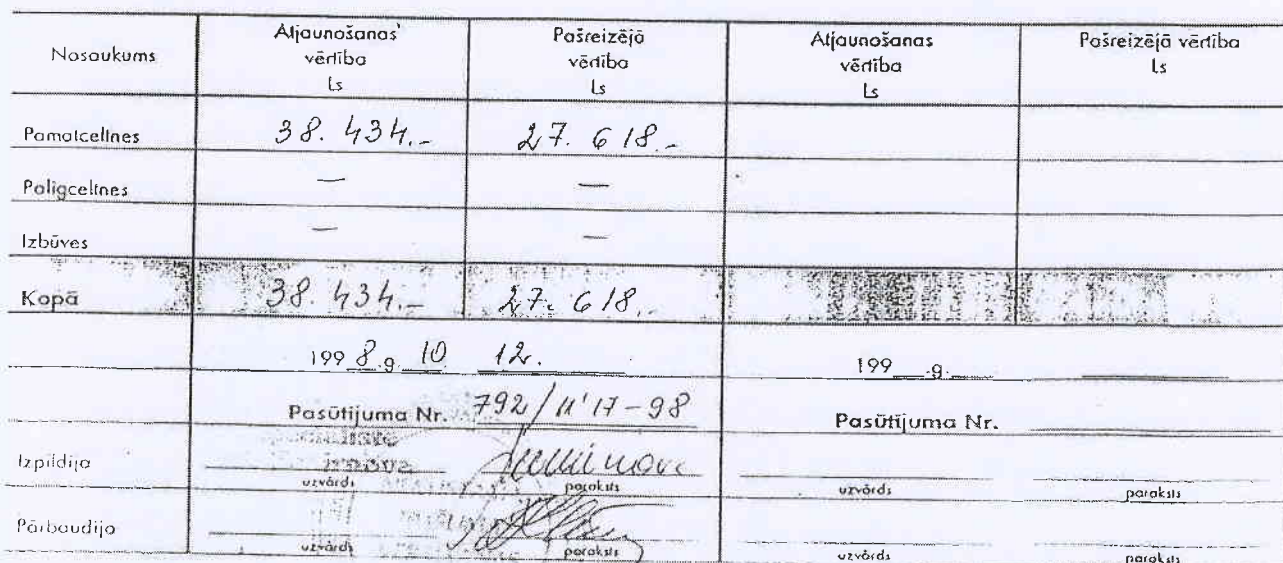 Nosaukums Atjaunošanas vērtība Ls Pašreizējā vērtība Ls Atjaunošanas vērtība Ls Pašreizējā vērtība Ls
Pamatceltnes 38.434.- 27.618.-
Palīgceltnes — —
Izbūves — —
Kopā 38.434.- 27.618.
1998.g. 10 12. 199 .g.
Pasūtījuma Nr. 792/11'17-98 Pasūtījuma Nr.
Izpildīja
uzvārds paraksts uzvārds paraksts
Pārbaudīja
uzvārds paraksts uzvārds paraksts